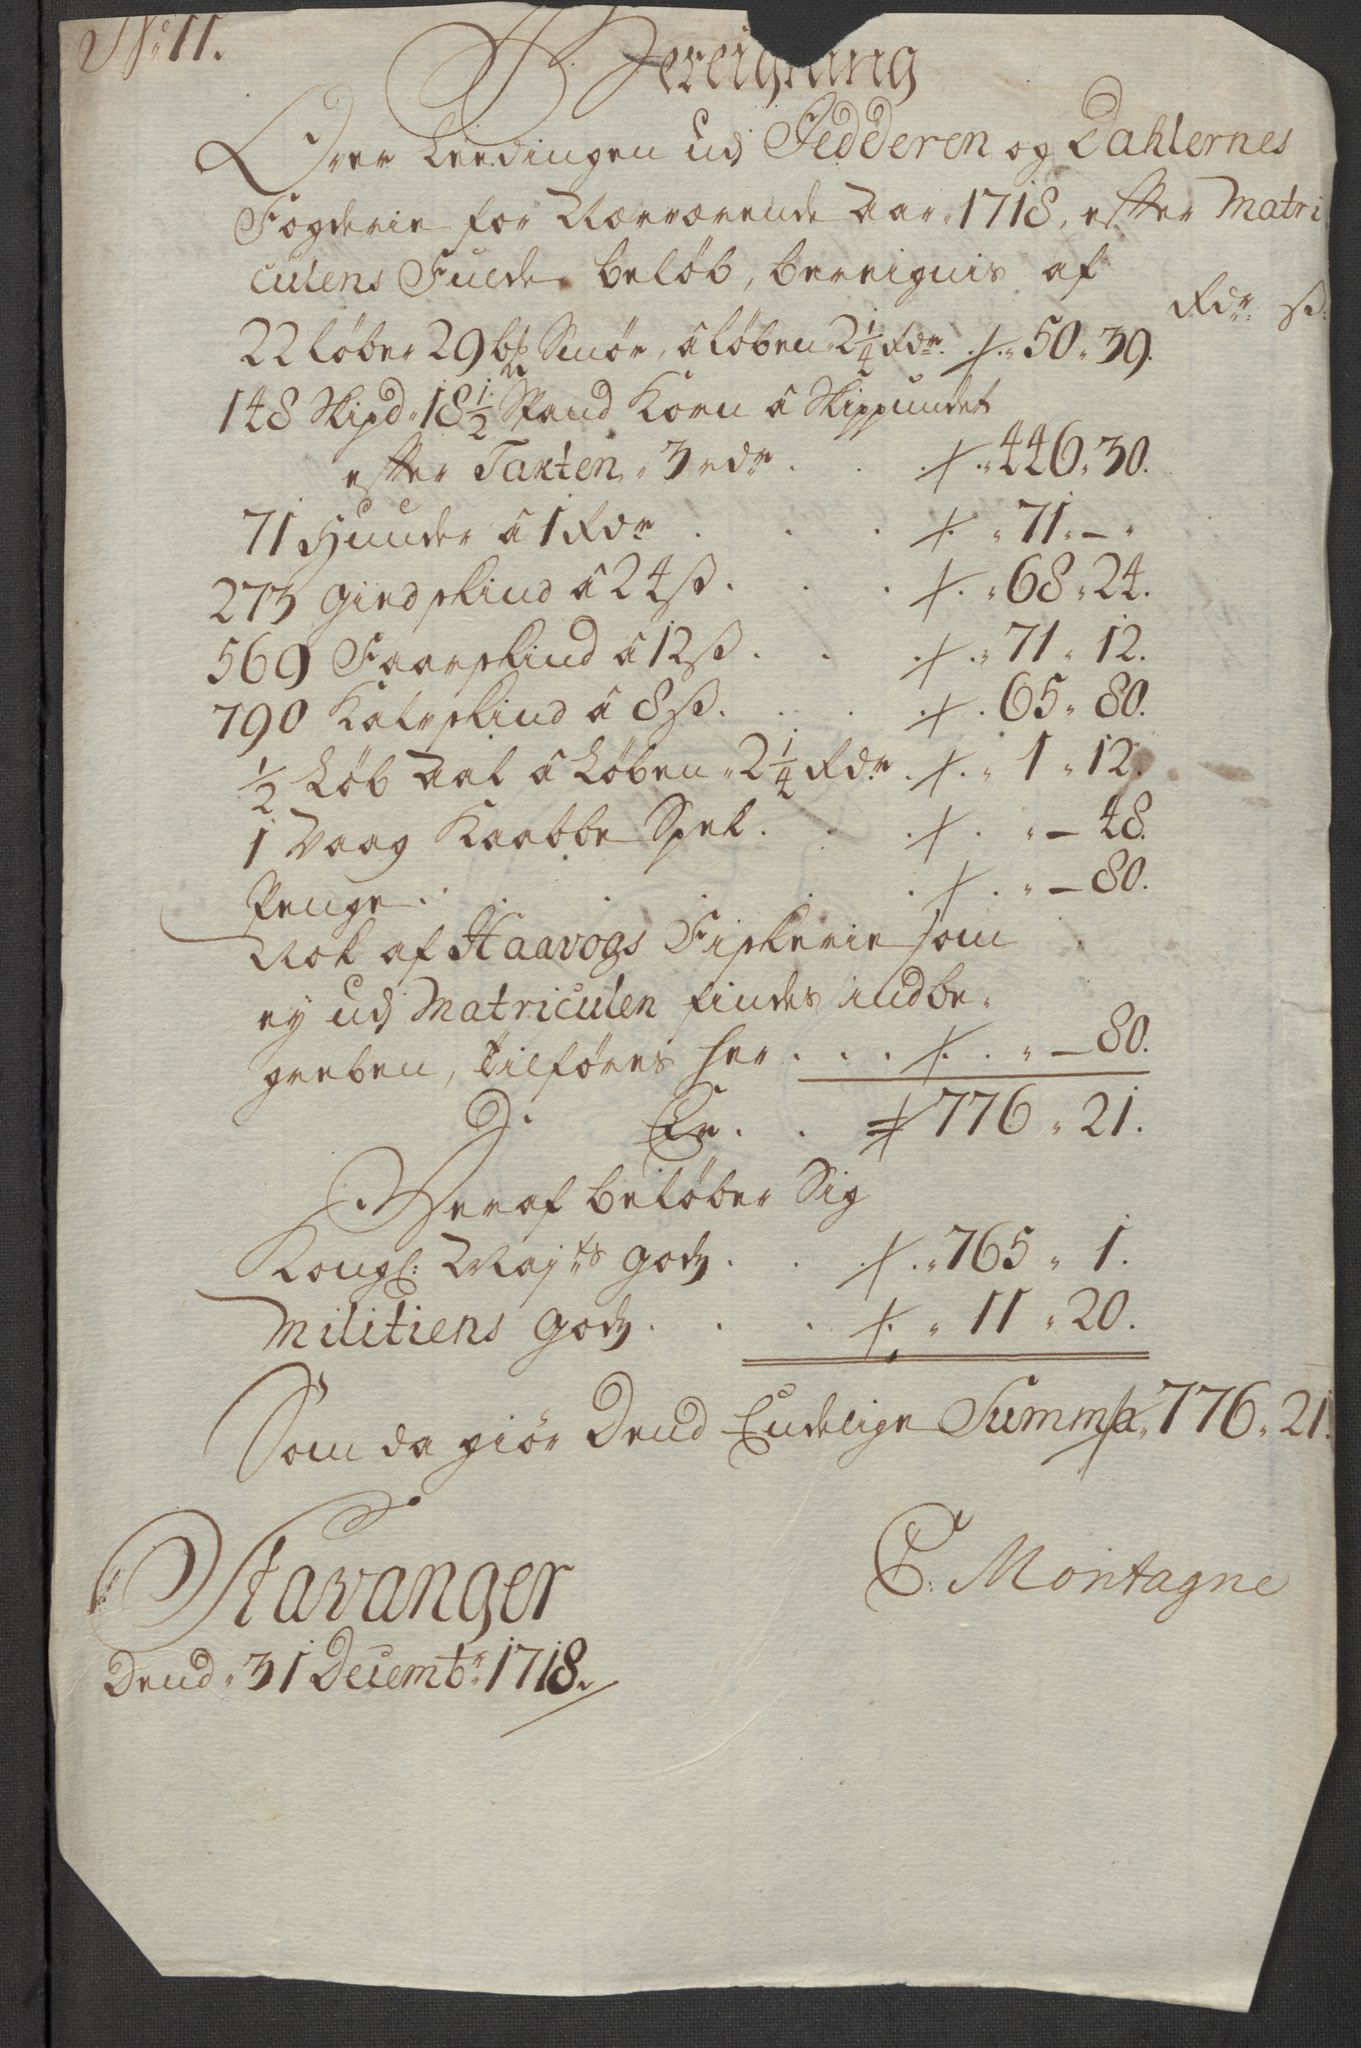 No 11.
Bereigning
Over Leedingen ud Jedderen og Dahlernes
Fogderie for Nærværende Aar 1718, efter Matri
culens Fulde beløb, bereignis af
Rdr: ß:
22 løber 29 bs Smør, â løben 2¼ Rdr. 50 „ 39.
148 Skipd 18½ Spand Korn â Skippundet
efter Taxten „ 3 rdr . 446 „ 30.
71 Huuder â 1 Rdr . . . „ 71 „ — „
273 Giedskind â 24 ß . . . „ 68 „ 24.
569 Faarskind â 12 ß . . . „ 71 „ 12.
790 Kalvskind â 8 ß . . . . 65 „ 80.
½ Løb Aal â Løben „ 2¼ Rdr . . „ 1 „ 12.
1 Vaag Kaabbe Spek . . . . „ — 48.
Penge . . . . . „ — 80.
Nok af Haavogs Fiskerie som
ey ud Matriculen findes indbe„
greben, tilføres her . . . . „ — 80.
Er . . 776 „ 21.
Heraf beløber Sig
Kongl: Majts godz . . . „ 765 „ 1.
Militiens godz . . . „ 11 „ 20.
Som da giør Dend Endelige Summa „ 776 „ 21.
Stavanger
Dend „ 31 Decembr 1718.
C: Montagne